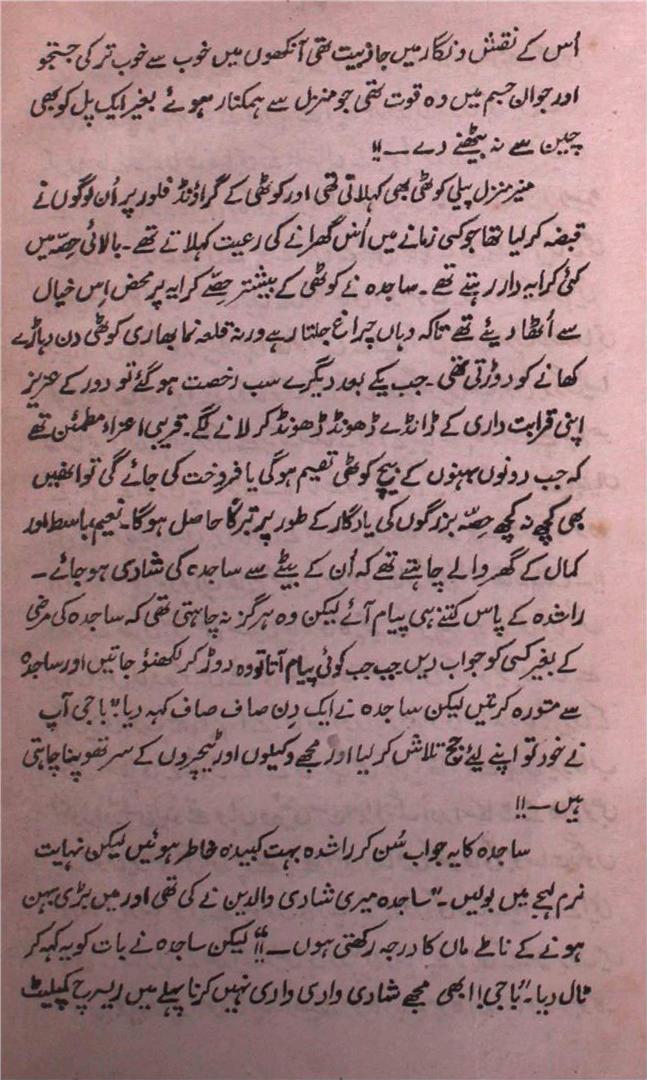 اُس کے نقش و نگار میں جاذبیت تھی آنکھوں میں خوب سے خوب تر کی جستجو
اور جوان جسم میں وہ قوت تھی جو منزل سے ہمکنار ہوئے بغیر ایک پل کو بھی
چین سے نہ بیٹھنے دے ــ !!
منیر منزل پیلی کوٹھی بھی کہلاتی تھی اور کوٹھی کے گراؤنڈ فلور پر اُن لوگوں نے
قبضہ کر لیا تھا جو کسی زمانے میں اُس گھرانے کی رعیت کہلاتے تھے۔ بالائی حِصّہ میں
کئی کرایہ دار رہتے تھے۔ ساجدہ نے کوٹھی کے بیشتر حِصّے کرایہ پر محض اِس خیال
سے اُٹھا دیئے تھے تاکہ وہاں چراغ جلتا رہے ورنہ قلعہ نما بھاری کوٹھی دن دہاڑے
کھانے کو دوڑتی تھی۔ جب یکے بعد دیگرے سب رخصت ہو گئے تو دور کے عزیز
اپنی قرابت داری کے ڈانڈے ڈھونڈ ڈھونڈ کر لانے لگے۔ قریبی اعزاء مطمئن تھے
کہ جب دونوں بہنوں کے بیچ کوٹھی تقسیم ہوگی یا فروخت کی جائے گی تو انھیں
بھی کچھ نہ کچھ حِصّہ بزرگوں کی یادگار کے طور پر تبرکاً حاصل ہوگا۔ نعیم، باسط اور
کمال کے گھر والے چاہتے تھے کہ اُن کے بیٹے سے ساجدہ کی شادی ہو جائے ۔
راشدہ کے پاس کتنے ہی پیام آئے لیکن وہ ہرگز نہ چاہتی تھی کہ ساجدہ کی مرضی
کے بغیر کسی کو جواب دیں جب جب کوئی پیام آتا تو وہ دوڑ کر لکھنؤ جاتیں اور ساجدہ
سے مشورہ کرتیں لیکن ساجدہ نے ایک دِن صاف صاف کہہ دیا۔ "باجی آپ
نے خود تو اپنے لیئے جج تلاش کر لیا اور مجھے وکیلوں اور ٹیچروں کے سر تھوپنا چاہتی
ہیں ــ !!
ساجدہ کا یہ جواب سُن کر راشدہ بہت کبیدہ خاطر ہوئیں لیکن نہایت
نرم لہجے میں بولیں۔ "ساجدہ میری شادی والدین نے کی تھی اور میں بڑی بہن
ہونے کے ناطے ماں کا درجہ رکھتی ہوں ــ !!" لیکن ساجدہ نے بات کو یہ کہہ کر
ٹال دیا۔ "باجی! ابھی مجھے شادی وادی وادی نہیں کرنا پہلے میں ریسرچ کمپلیٹ